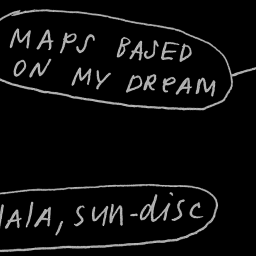 MAPS BASED
ON MY DREAM
sun-disc